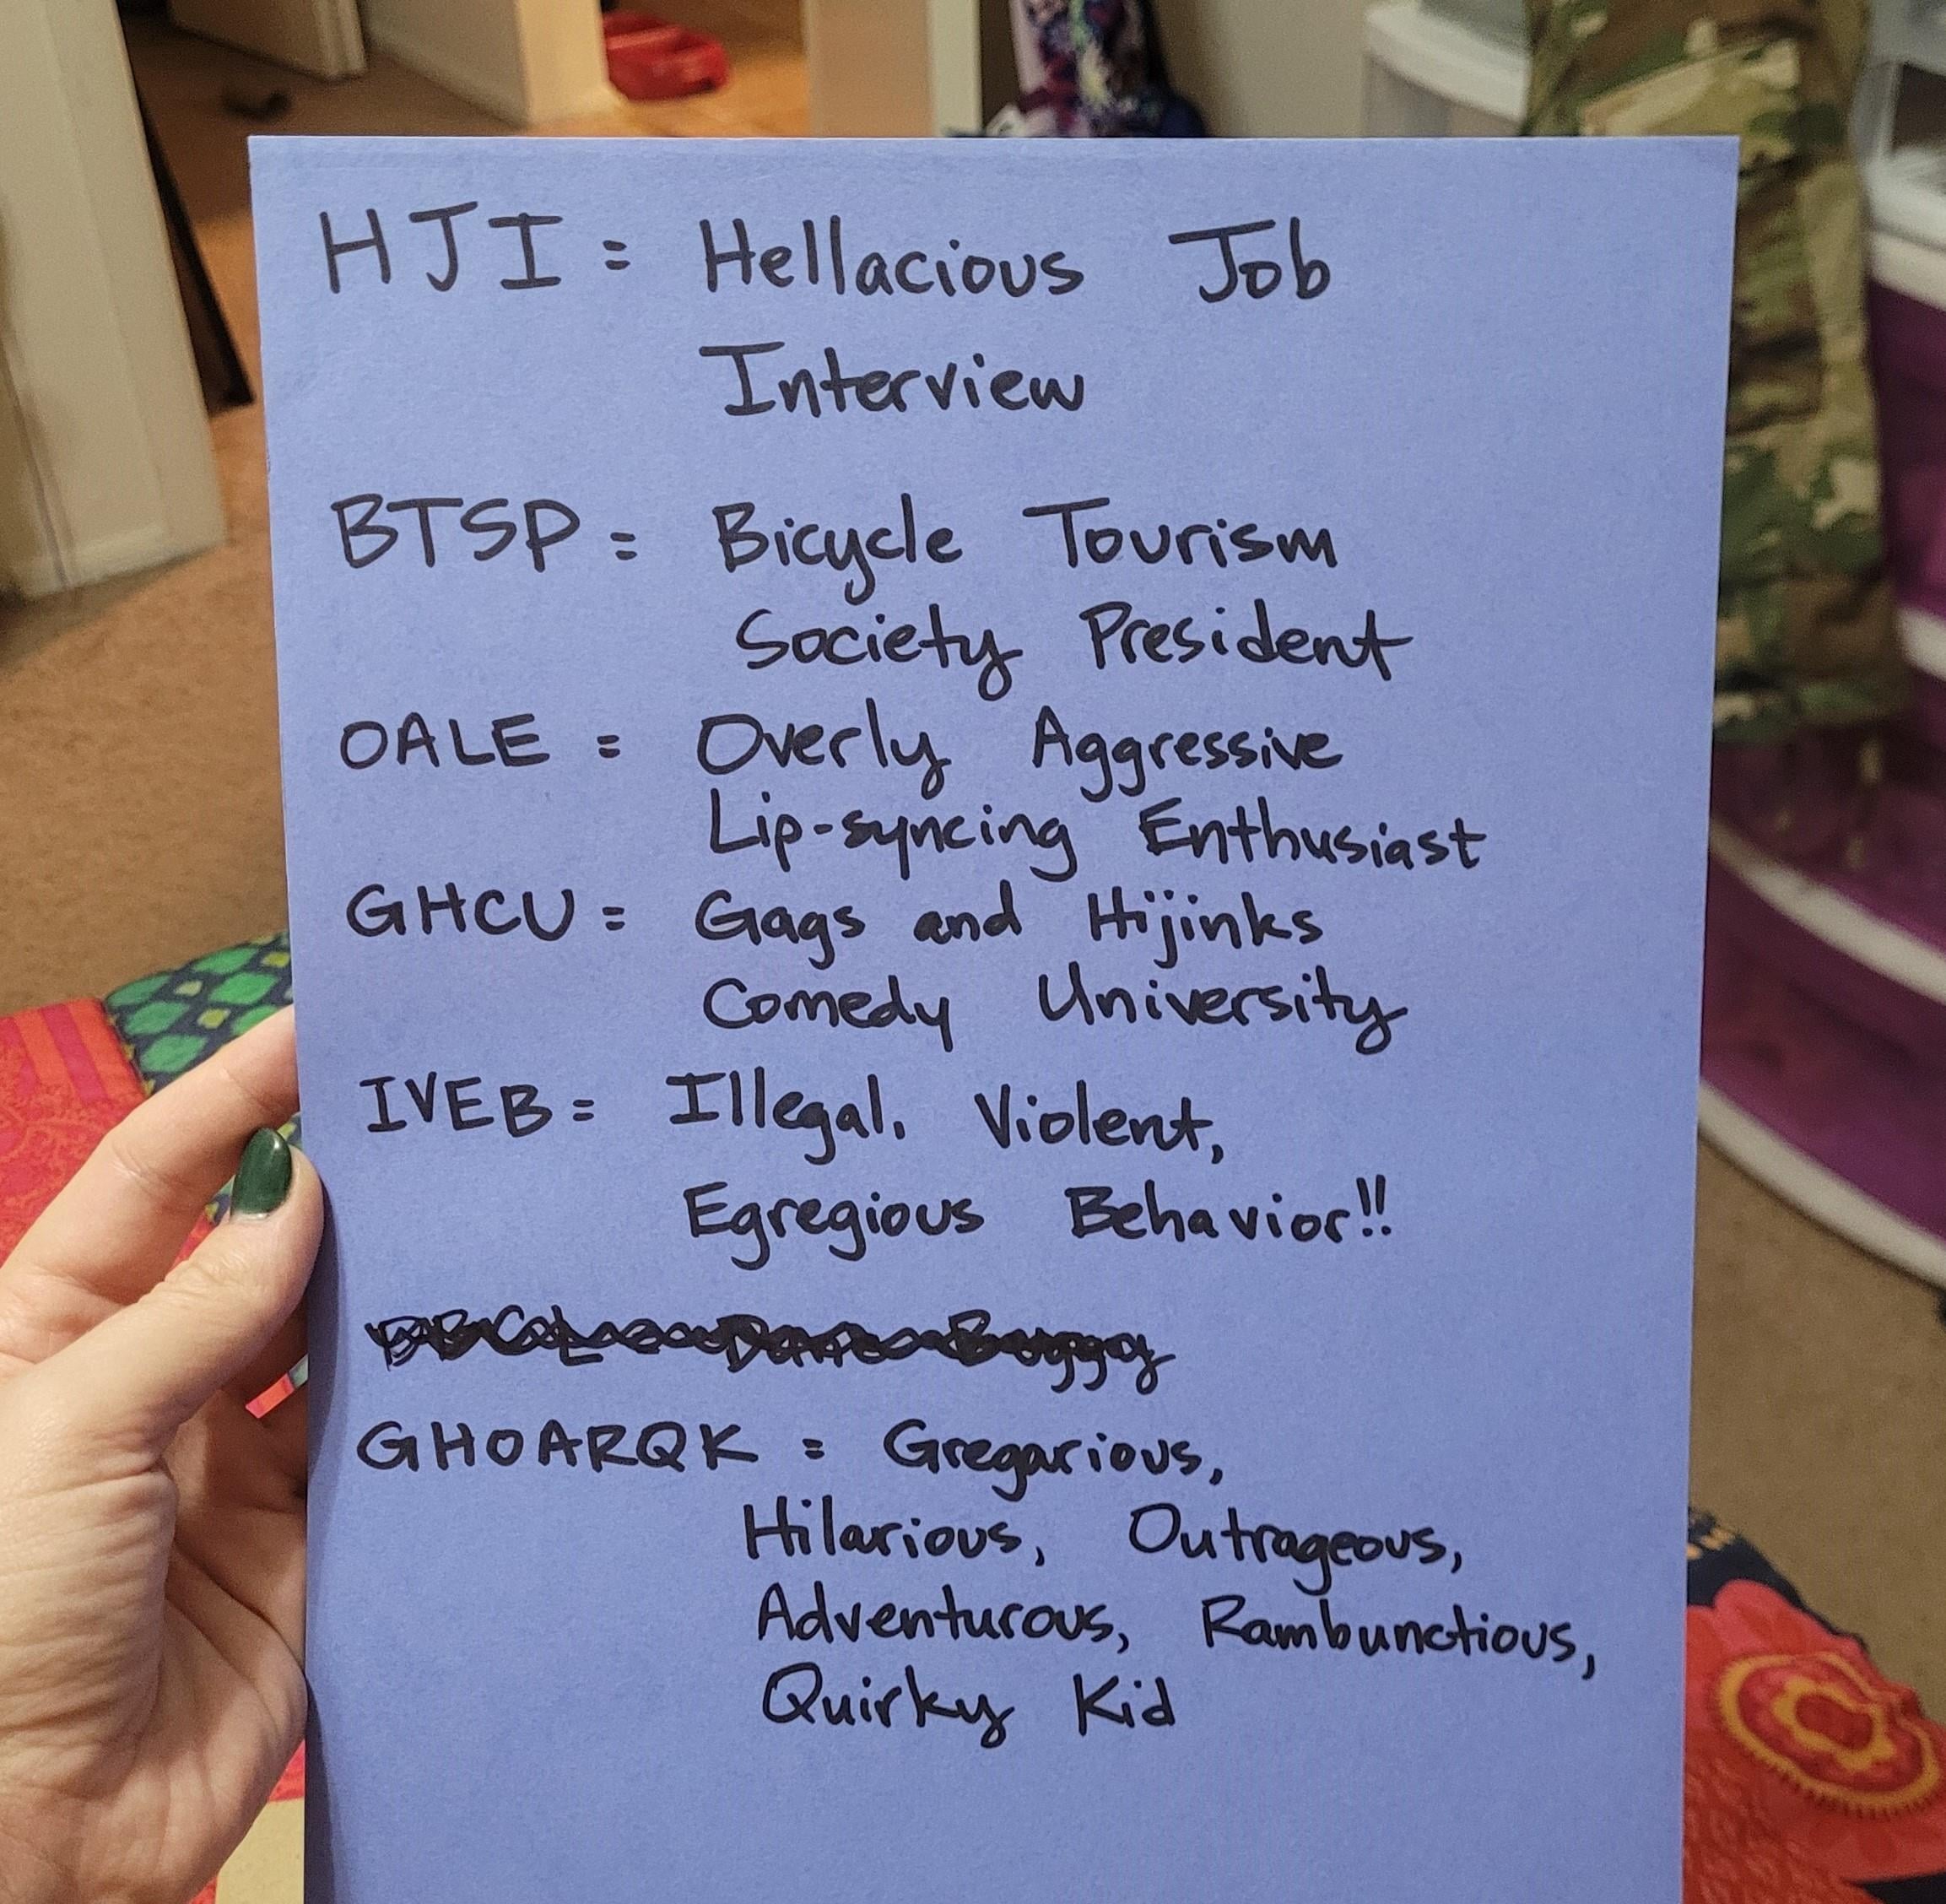 HJI = Hellacious Job
Interview
BTSP = Bicycle Tourism
Society President
OALE = Overly Aggressive
Lip-syncing Enthusiast
GHCU = Gags and Hijinks
Comedy University
IVEB = Illegal, Violent,
Egregious Behavior!!
GHOARQK = Gregarious,
Hilarious, Outrageous,
Adventurous, Rambunctious,
Quirky Kid